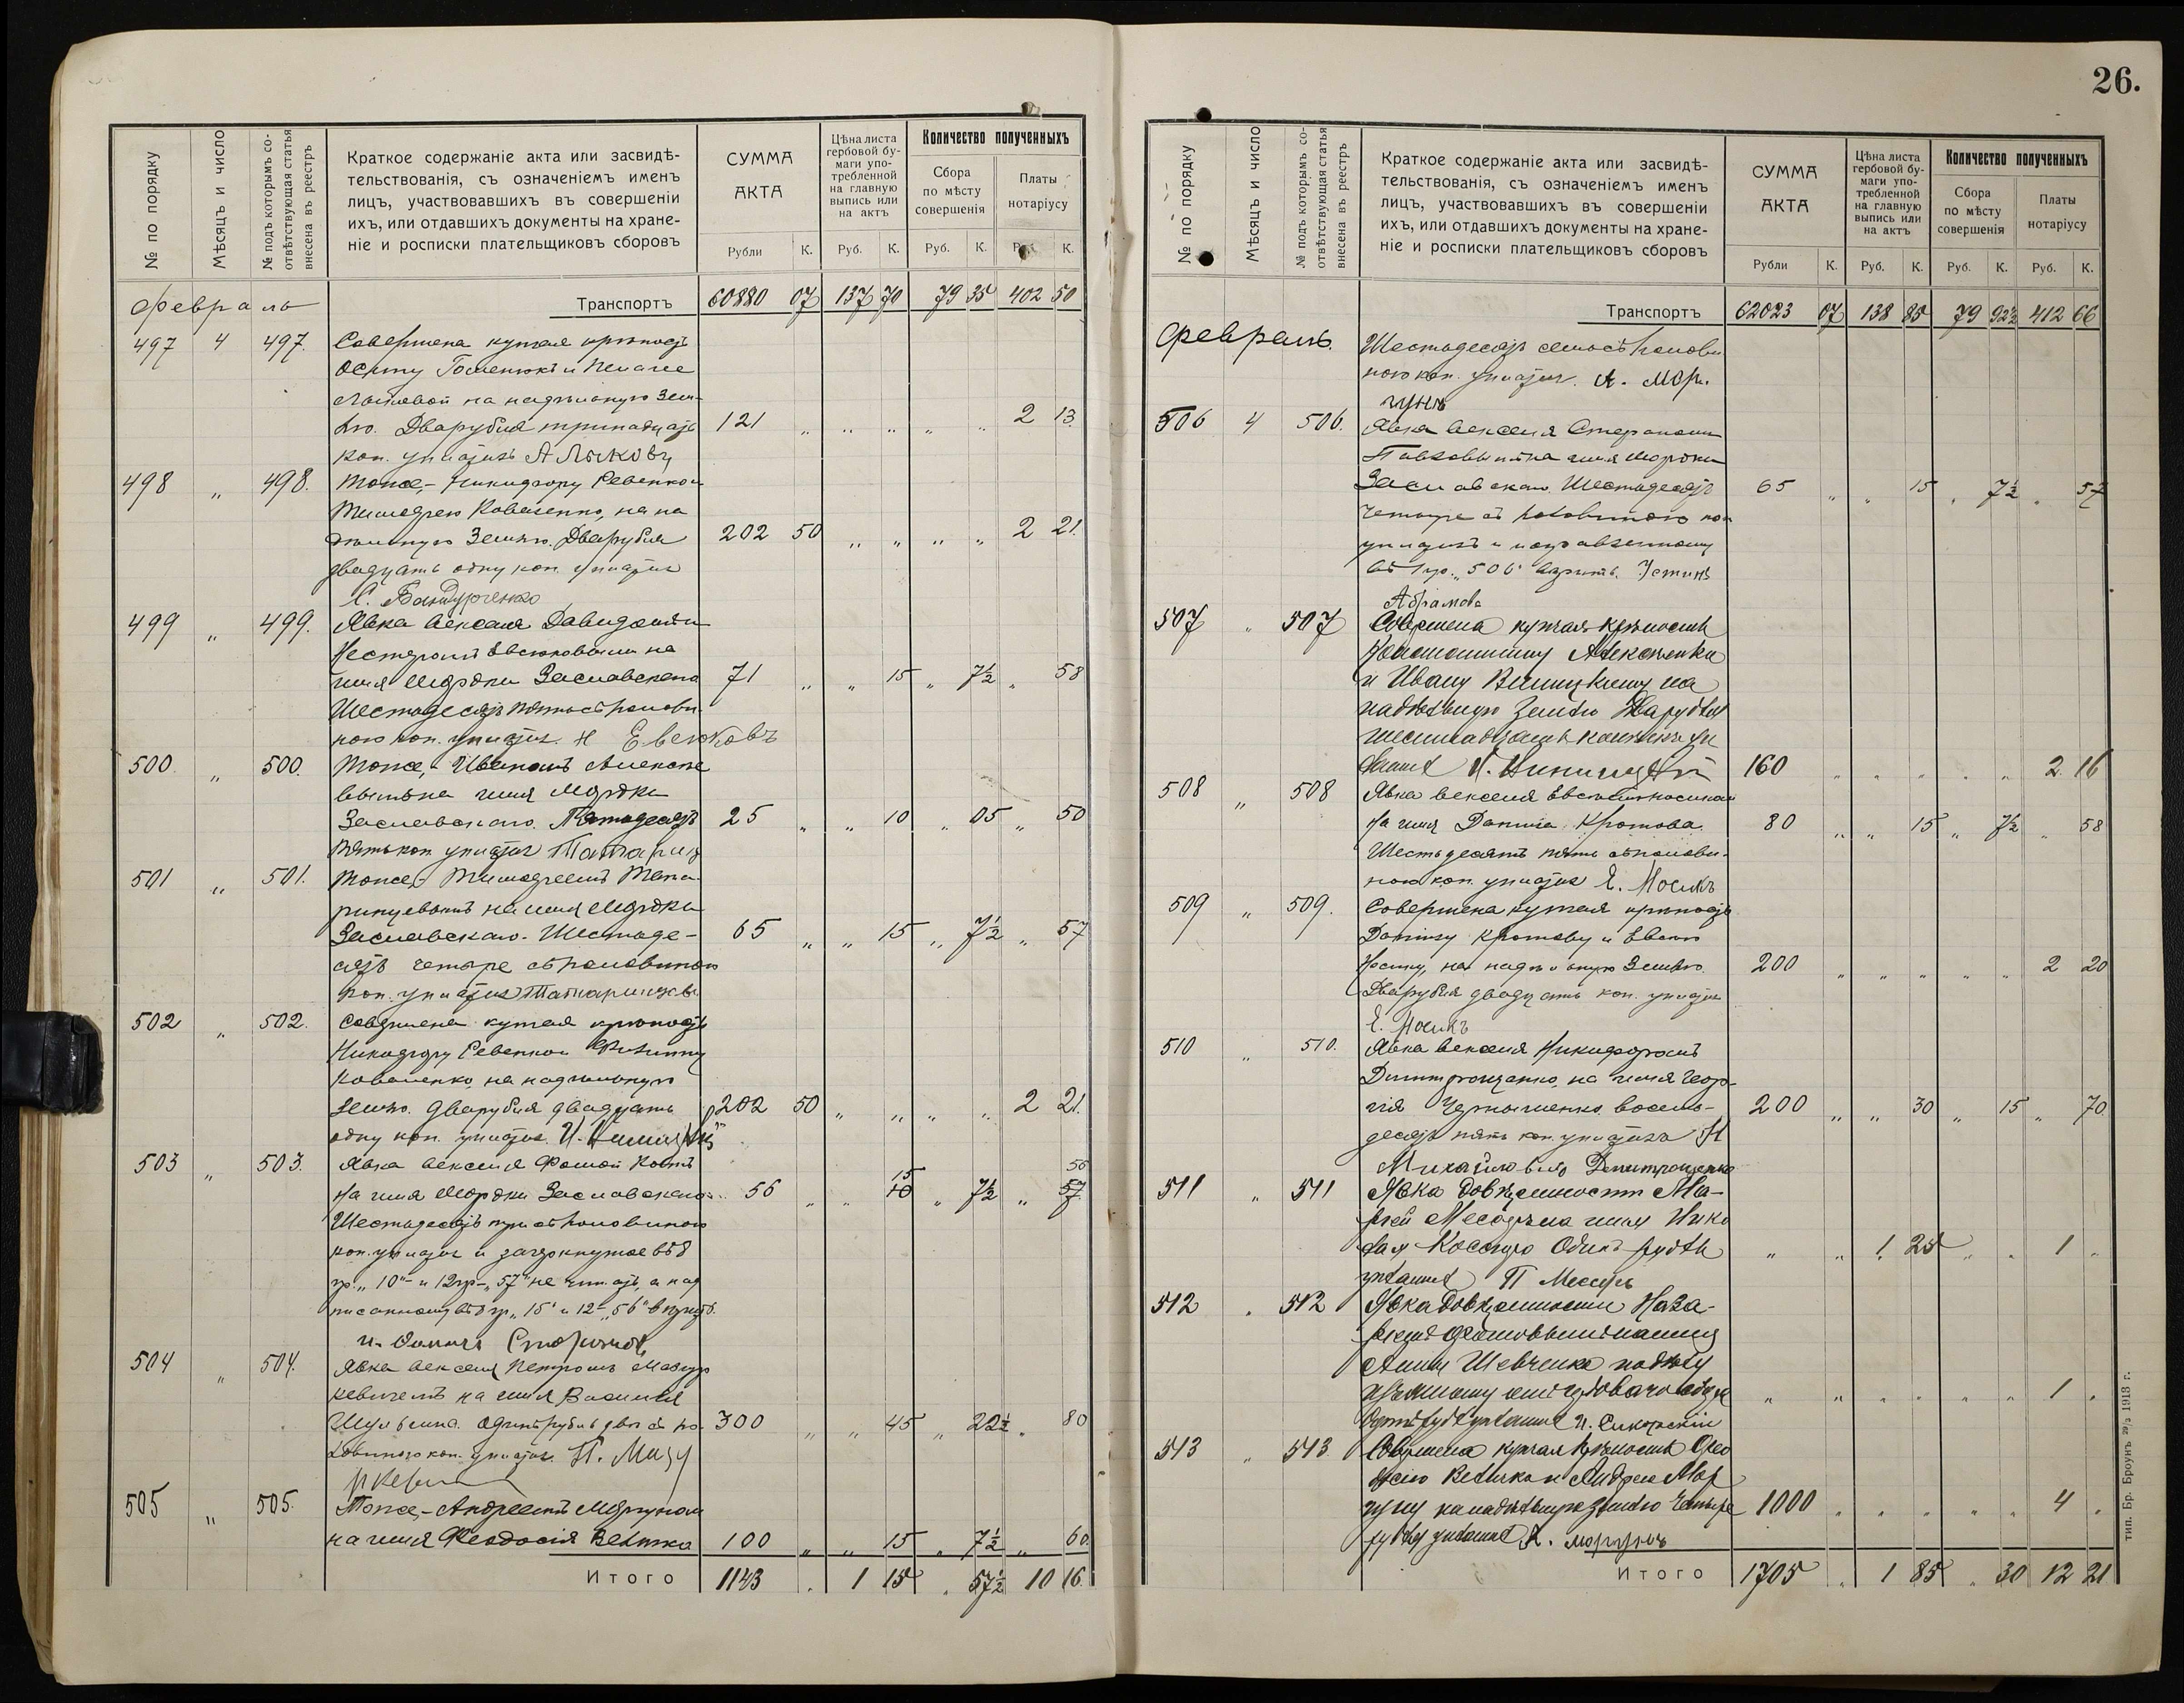 № по порядку
Мѣсяцъ и число
№ подъ которымъ со-
отвѣтствующая статья
внесена въ реестръ
Краткое содержаніе акта или засвидѣ-
тельствованія, съ означеніемъ именъ
лицъ, участвовавшихъ въ совершеніи
ихъ, или отдавшихъ документы на хране-
ніе и росписки плательщиковъ сборовъ
СУММА
АКТА
Рубли К.
Цѣна листа
гербовой бу-
маги упо-
требленной
на главную
выпись или
на актъ
Руб. К.
Количество полученныхъ
Сбора
по мѣсту
совершенія
Руб. К.
Платы
нотаріусу
К.
Февраль Транспортъ 60880 07 137 70 79 35 402 50
497 4 497. Совершена купчая крѣпость
на надѣльную зем-
лю. Два рубля тринадцать 121 " " " " " 2 13
коп. уплатилъ А Лыковъ
498 " 498. Тоже, Никифору Ревенко и
Тимофею Коваленко, на на
дѣльную землю. Два рубля 202 50 " " " " 2 21.
двадцать одну коп. уплатилъ
499 " 499. Явка векселя Давидомъ и
Несторомъ Евсюковыми на
имя Мордки Заславскаго 71 " " 15 " 7½ " 58
Шестьдесятъ пять съ полови-
ною коп. уплатилъ. Н Евсюковъ
500 " 500. Тоже,
вымъ на имя Мордки
Заславскаго. Пятьдесятъ 25 " " 10 " 05 " 50
пять коп уплатилъ
501 " 501. Тоже, Тимофеемъ Тата-
ринцевымъ на имя Мордки
Заславскаго. Шестьде- 65 " " 15 " 7½ " 57
сятъ четыре съ половиною
коп. уплатилъ Татаринцевъ
502 " 502. Совершена купчая крѣпость
Никифору Ревенко и Филиппу
Коваленко, на надѣльную
землю. Два рубля двадцать 202 50 " " " " 2 21.
одну коп. уплатилъ.
503 " 503. Явка векселя Фомой
15 56
на имя Мордки Заславскаго. 56 " " 10 " 7½ " 57
Шестьдесятъ три съ половиною
коп. уплатилъ и зачеркнутое въ 8
гр. „10" и 12 гр. „57" не читать, а над
писанному въ 8 гр. „15" и 12 „56" вѣрить.
504 " 504. Явка векселя Петромъ Мазур
кевичемъ на имя Василія
Одинъ рубль двѣ съ по- 300 " " 45 " 22½ " 80
ловиною коп. уплатилъ. П. Мазу
ркевичъ
505 " 505. Тоже, Андреемъ Моргуномъ
на имя Феодосія Велика 100 " " 15 " 7½ " 60.
Итого 1143 " 1 15 " 57½ 10 16
26.
№ по порядку
Мѣсяцъ и число
№ подъ которымъ со-
отвѣтствующая статья
внесена въ реестръ
Краткое содержаніе акта или засвидѣ-
тельствованія, съ означеніемъ именъ
лицъ, участвовавшихъ въ совершеніи
ихъ, или отдавшихъ документы на хране-
ніе и росписки плательщиковъ сборовъ
СУММА
АКТА
Рубли К.
Цѣна листа
гербовой бу-
маги упо-
требленной
на главную
выпись или
на актъ
Руб. К.
Количество полученныхъ
Сбора
по мѣсту
совершенія
Руб. К.
Платы
нотаріусу
Руб. К.
Транспортъ 62023 07 138 85 79 92½ 412 66
Февраль. Шестьдесятъ семь съ полови
ною коп. уплатилъ. А. Мор.
гунъ
506 4 506. Явка векселя
на имя Мордки
Заславскаго. Шестьдесятъ 65 " " 15 " 7½ " 57
четыре съ половиною коп
уплатилъ и поправленному
въ 1 гр. „506" вѣрить. Устинъ
Абрамовъ
507 " 507 Совершена купчая крѣпость
и Ивану Винницкому на
надѣльную землю Два рубля
шестнадцать копѣекъ уп
латилъ 160 " " " " " 2 16
508 " 508 Явка векселя
на имя Данила Кротова. 80 " " 15 " 7½ " 58
Шестьдесятъ пять съ полови-
ною коп. уплатилъ Е. Носикъ
509 " 509. Совершена купчая крѣпость
Данилу Кротову и
Носику, на надѣльную землю. 200 " " " " " 2 20
Два рубля двадцать коп. уплатилъ
Е. Носикъ
510 " 510. Явка векселя Никифоромъ
Дмитрощенко, на имя Геор-
гія Чернышенко. Восемь- 200 " " 30 " 15 " 70.
десятъ пять коп. уплатилъ Н
Дмитрощенко
511 " 511 Явка довѣренности Ма-
на имя Нико
лая Одинъ рубль " " 1. 25 " " 1 "
уплатилъ П
512 " 512 Явка довѣренности Наза-
Анны Шевченко
" " " " " " 1 "
Одинъ рубль уплатилъ И. Сикорскій
513 " 513 Совершена купчая крѣпость Фео
досію Велика и Андрею Мор
гуну на надѣльную землю Четыре 1000 " " " " " 4 "
рубля уплатилъ А. Моргунъ
Итого 1705 " 1 85 " 30 12 21
тип. Бр. Броунъ 1913 г.